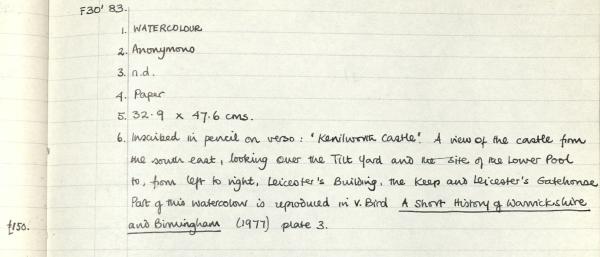 F30' 83.
1. WATERCOLOUR
2. Anonymono
3. n.d.
4. Paper
5. 32.9 x 47.6 cms.
6. Inscribed in pencil on verso: "Kenilworth Castle". A view of the castle from
the south east, looking over the Tilt Yard and the site of the Lower Pool
to, from left to right, Leicester's Building, the Keep and Leicester's Gatehouse
Part of this watercolour is reproduced in V. Bird A Short History of Warwickshire
£150. and Birmingham (1977) plate 3.